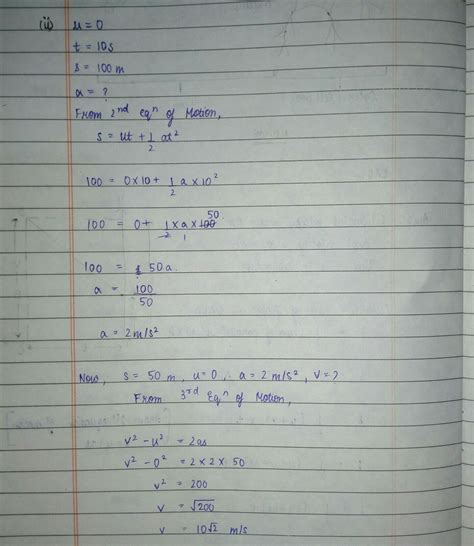 (ii) u = 0
t = 10s
s = 100 m
a = ?
From 2nd eqn of Motion,
s = ut + 1/2 at²
100 = 0 × 10 + 1/2 a × 10²
100 = 0 + 1/2 × a × 100 50
1
100 = 50a
a = 100/50
a = 2 m/s²
Now, s = 50 m, u = 0, a = 2 m/s², v = ?
From 3rd Eqn of Motion,
v² - u² = 2as
v² - 0² = 2 × 2 × 50
v² = 200
v = √200
v = 10√2 m/s